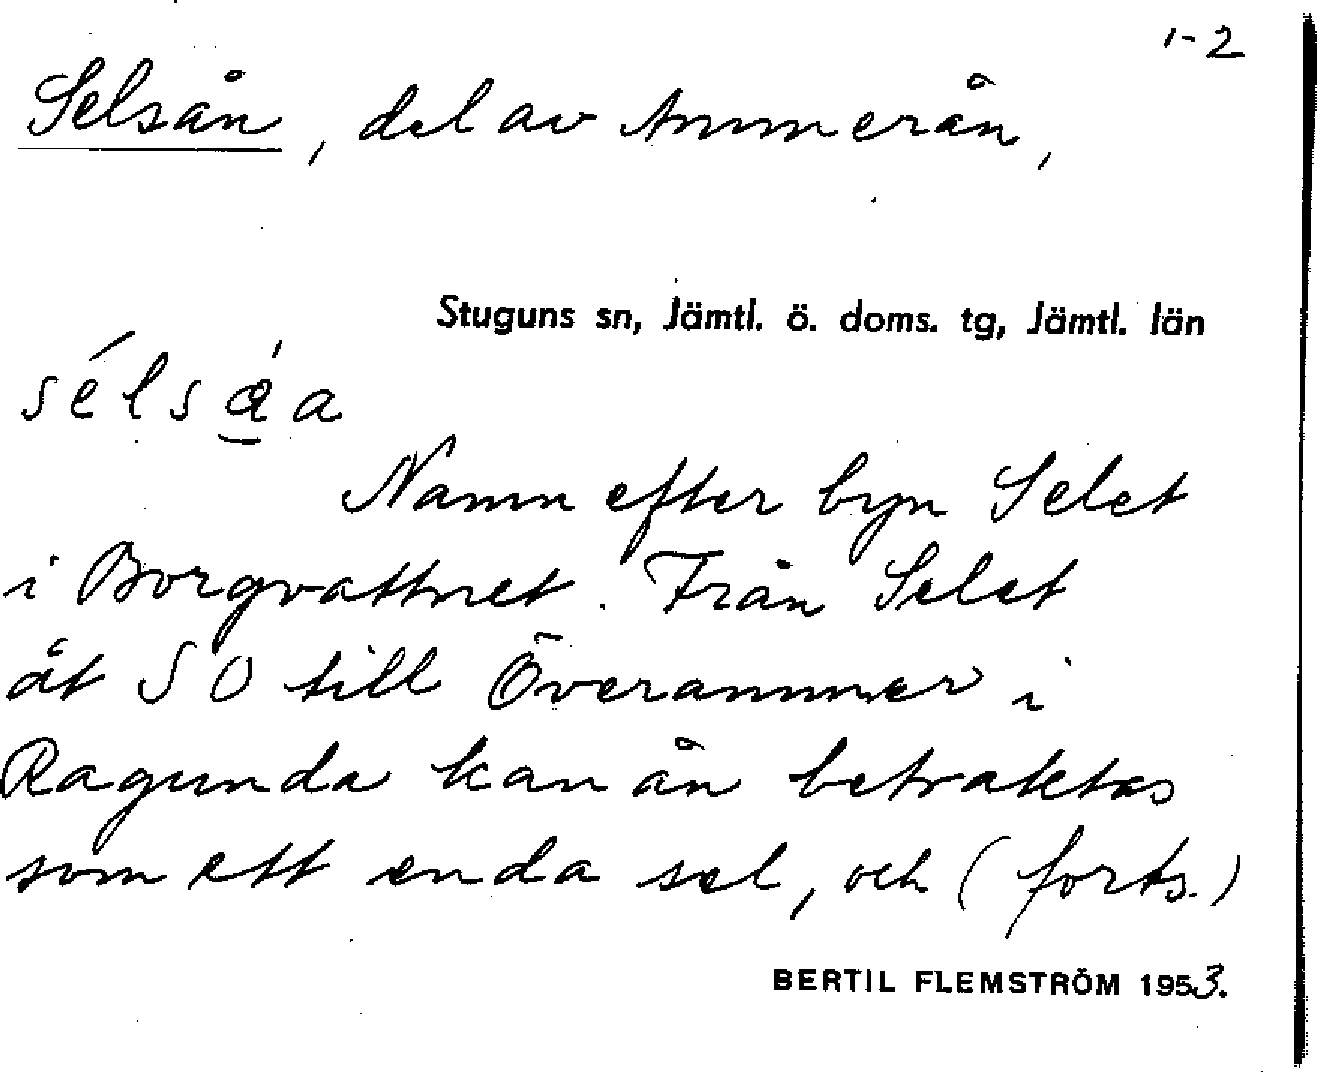 1-2
Selsån, del av Ammerån,
Stuguns sn, Jämtl. ö. doms. tg, Jämtl. län
Namn efter byn Selet
i Borgvattnet. Från Selet
åt SO till Överammer i
Ragunda kan ån betraktas
som ett enda sel, och (forts.)
BERTIL FLEMSTRÖM 1953.